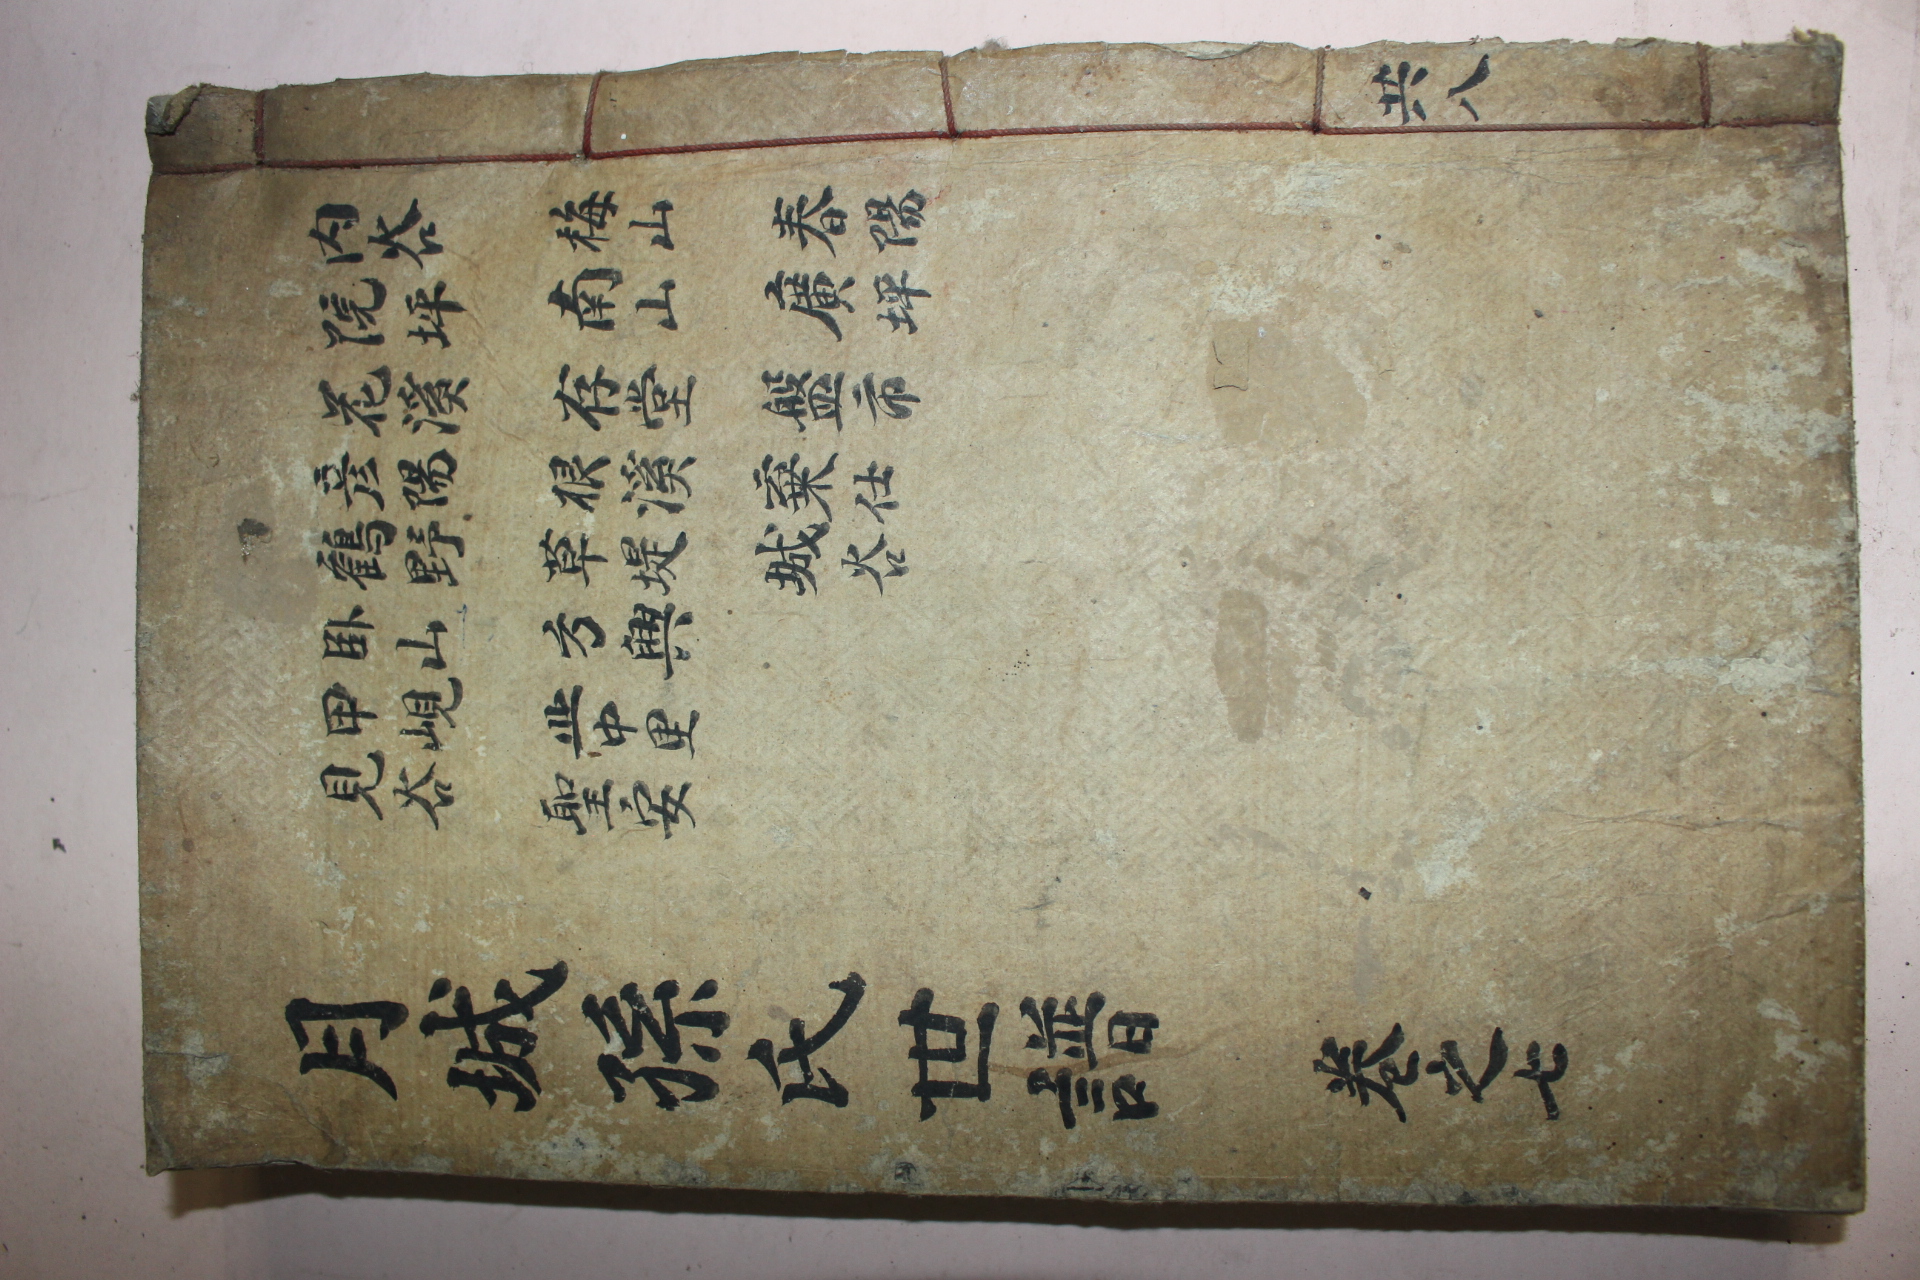 內谷 梅山 春陽
院坪 南山 廣坪
花溪 存堂 盤市
彦陽 根溪 棄仕
鶴野 草堤 城谷
卧山 方興
甲峴 中里
見谷 聖安
月城孫氏世譜 卷之七
共八